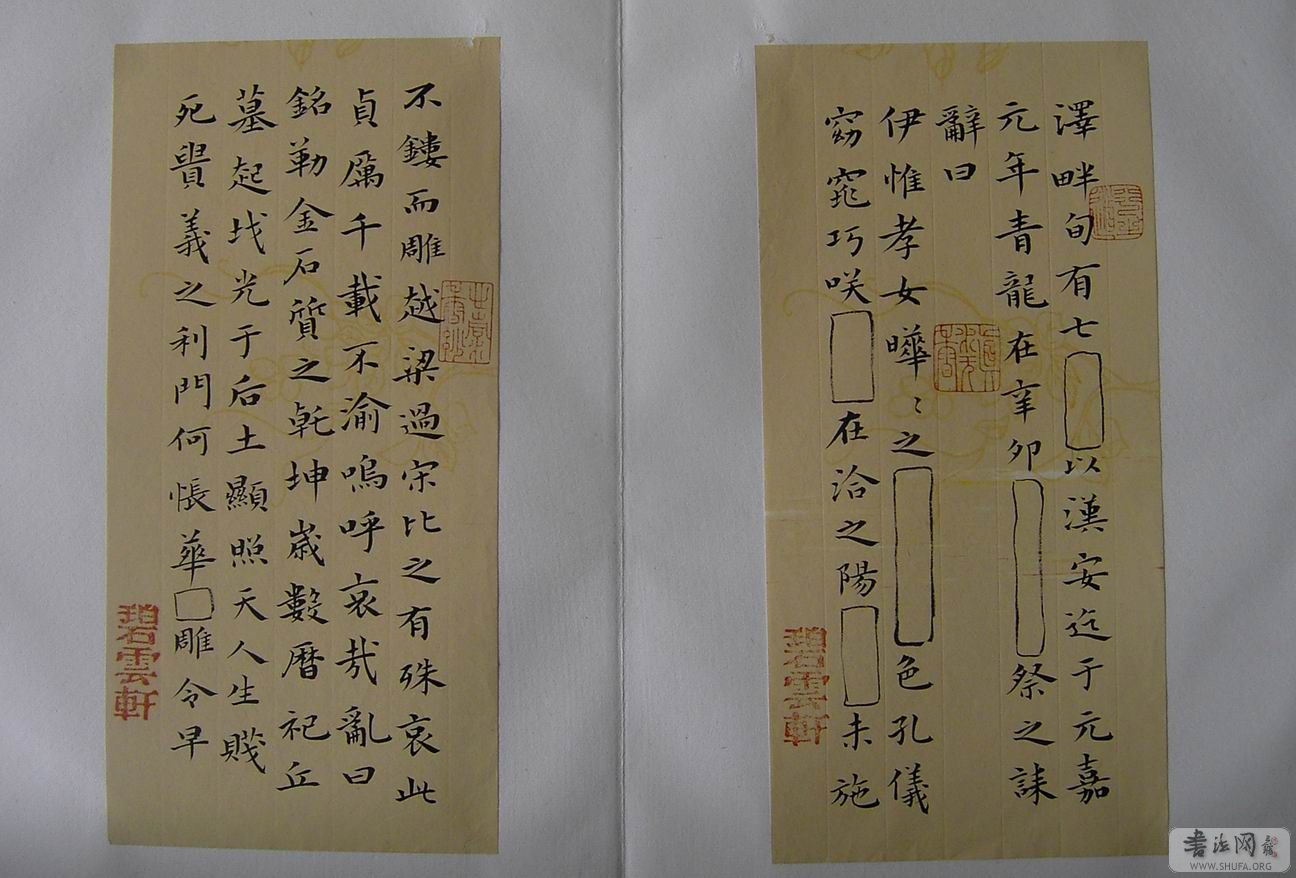 澤畔旬有七□以漢安迄于元嘉
元年青龍在辛卯□祭之誄
辭曰
伊惟孝女曄〻之□色孔儀
窈窕巧咲□在洽之陽□未施
碧雲
不鏤而雕越梁過宋比之有殊哀此
貞厲千載不渝嗚呼哀哉亂曰
銘勒金石質之乹坤歳數曆祀丘
墓起坟光于后土顯照天人生賤
死貴義之利門何悵華□雕令早
碧雲
書法网
WWW.SHUFA.ORG